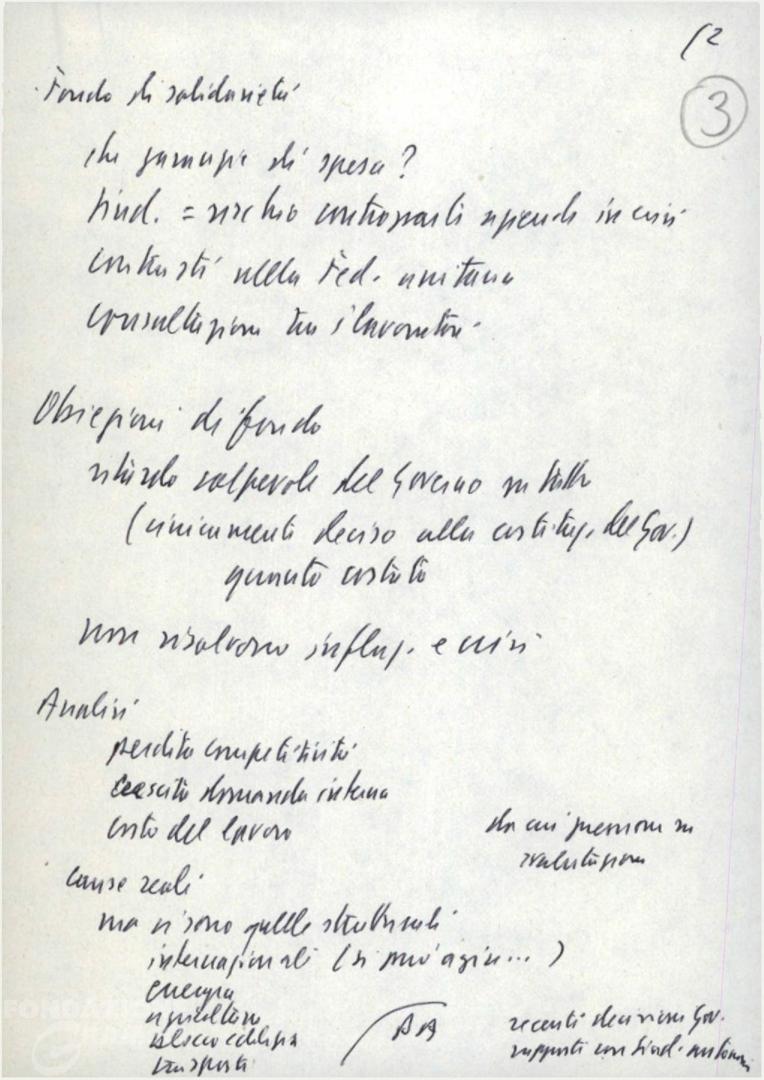 (2
3
Fondo di solidarietà
che garanzie di spesa?
Sind. = rischio controparti aziende in crisi
contrasti nella Fed. unitaria
consultazioni tra i lavoratori
Obiezioni di fondo
ritardo colpevole del Governo su tutto
(cinicamente deciso alla costituz. del Gov.)
quanto costato
non risolvono inflaz. e crisi
Analisi
perdita competitività
crescita domanda interna
costo del lavoro
da cui pressioni su
svalutazione
cause reali
ma vi sono quelle strutturali
internazionali (si può agire...)
energia
agricoltura
blocco edilizia
trasporti
AA
recenti decisioni Gov.
rapporti con sind. autonomi
FONDAZI